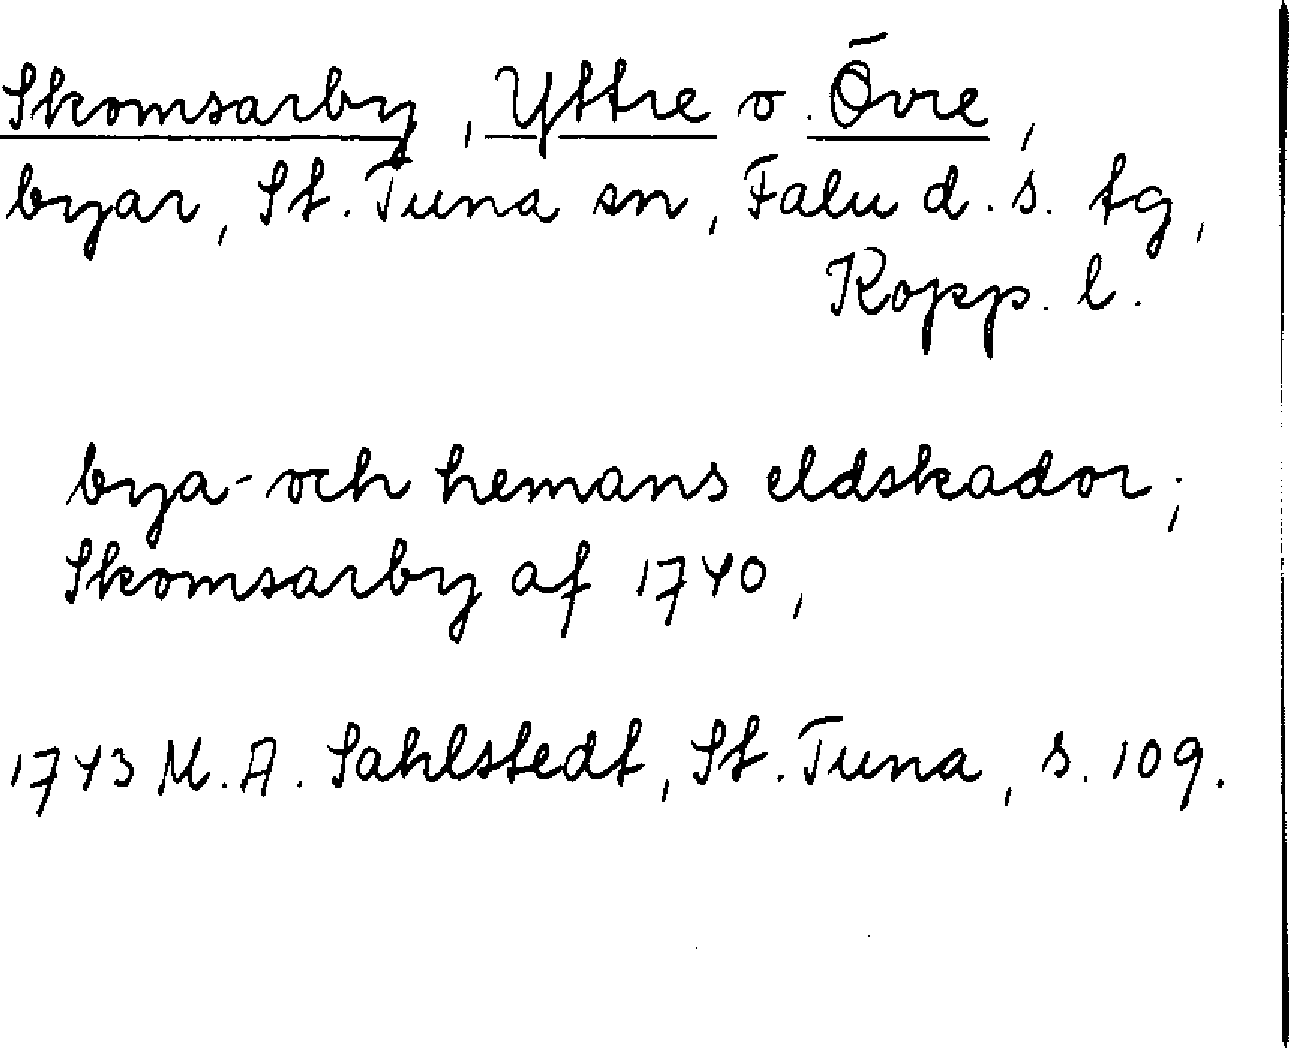 Skomsarby, Yttre o. Övre,
byar, St. Tuna sn, Falu d. s. tg,
Kopp. l.
bya- och hemans eldskador;
Skomsarby af 1740,
1743 M. A. Sahlstedt, St. Tuna, s. 109.